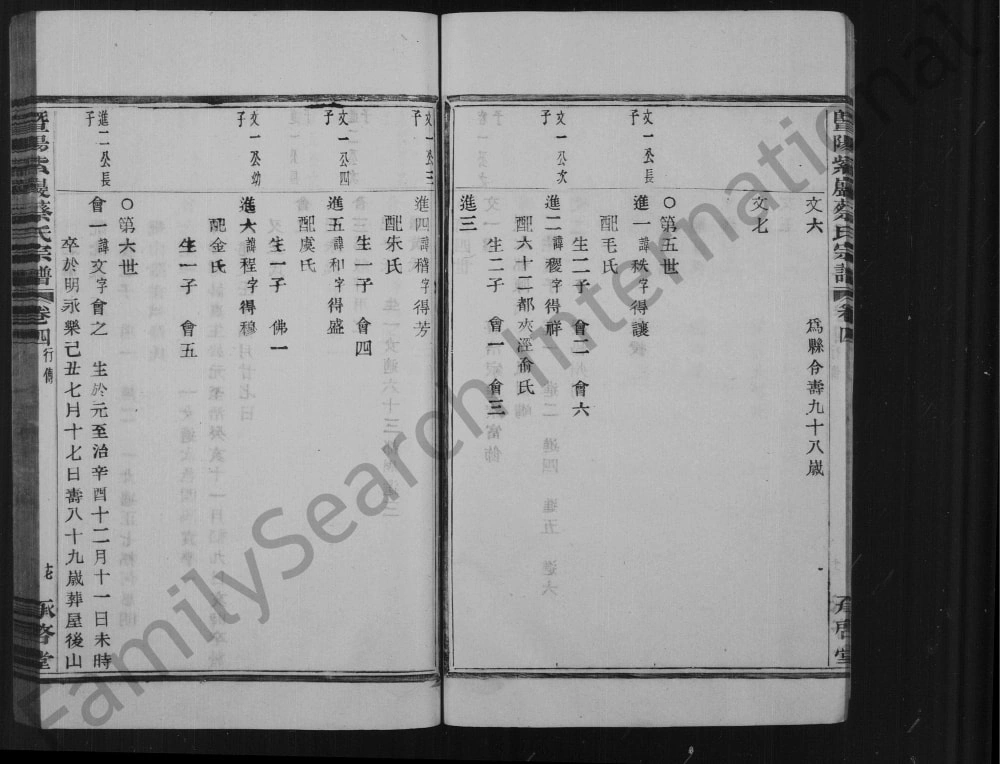 文六　為縣令壽九十八歲
文七
○第五世
文一公長子
進一諱秩字得讓
配毛氏
生二子　會二　會六
文一公次子
進二諱稷字得祥
配六十二都夾涇俞氏
生二子　會一　會三
進三
文一公三子
進四諱稽字得芳
配朱氏
生一子　會四
文一公四子
進五諱和字得盛
配虞氏
生一子　佛一
文一公幼子
進六諱程字得穆
配金氏
生一子　會五
○第六世
進二公長子
會一諱文字會之　生於元至治辛酉十二月十一日未時
卒於明永樂己丑七月十七日壽八十九歲葬屋後山
暨陽紫巖蔡氏宗譜　卷四　行傳　承啓堂
FamilySearch International